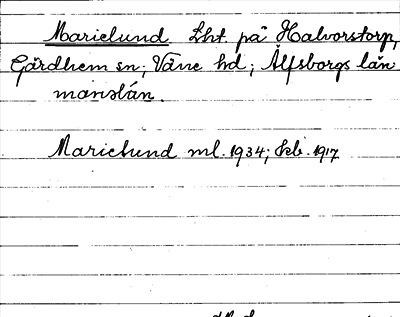 Marielund Lht. på Halvorstorp,
Gärdhem sn; Väne hd; Älfsborgs län
manslån.
Marielund ml. 1934; kb. 1917